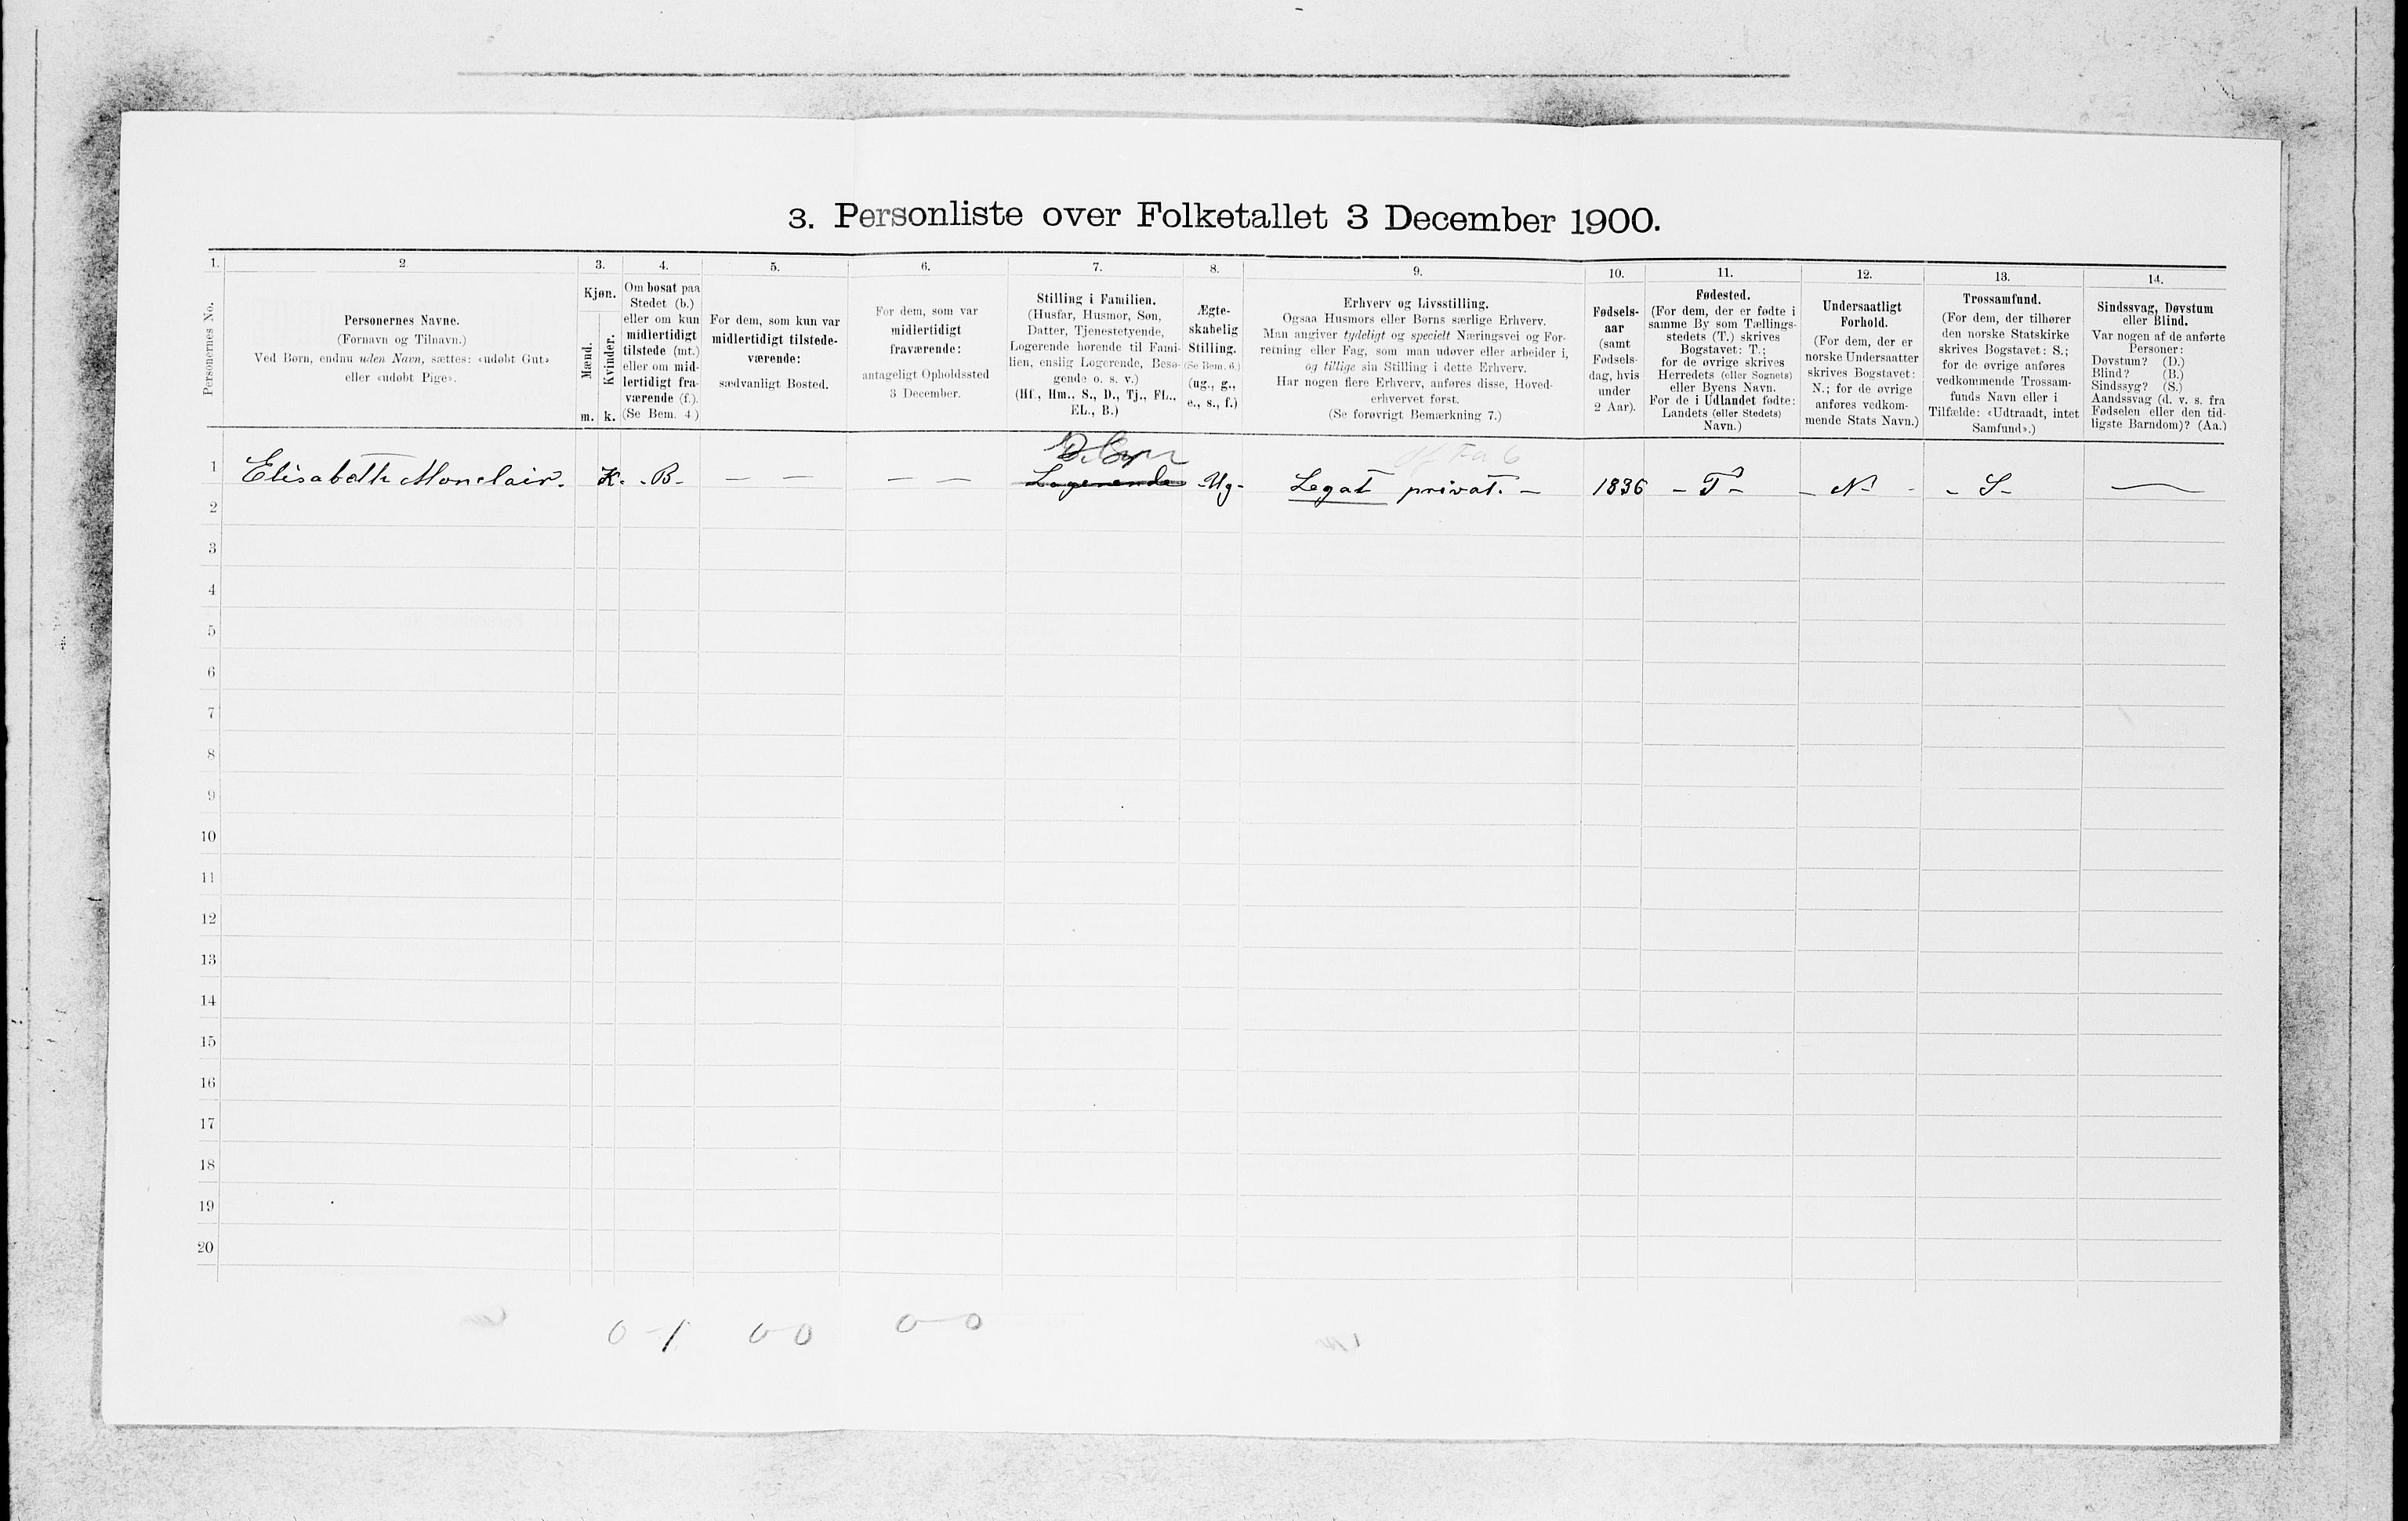 3. Personliste over Folketallet 3 December 1900.
1. 2 3. 4. 5. 6. 7. 8. 9. 10. 11. 12. 13. 14.
Personernes No.
Personernes Navne.
(Fornavn og Tilnavn.)
Ved Børn, endnu uden Navn, sættes: «udøbt Gut»
eller «udøbt Pige».
Kjøn.
Mænd.
Kvinder.
m. k.
Om bosat paa
Stedet (b.)
eller om kun
midlertidigt
tilstede (mt.)
eller om mid-
lertidigt fra-
værende (f.).
(Se Bem. 4.)
For dem, som kun var
midlertidigt tilstede-
værende:
sædvanligt Bosted.
For dem, som var
midlertidigt
fraværende:
antageligt Opholdssted
3 December.
Stilling i Familien.
(Husfar, Husmor, Søn,
Datter, Tjenestetyende,
Logerende hørende til Fami-
lien, enslig Logerende, Besø-
gende o. s. v.)
(Hf., Hm., S., D., Tj., FL.,
EL., B.)
Ægte-
skabelig
Stilling.
(Se Bem. 6.)
(ug., g.,
e., s., f.)
Erhverv og Livsstilling.
Ogsaa Husmors eller Børns særlige Erhverv.
Man angiver tydeligt og specielt Næringsvei og For-
retning eller Fag, som man udøver eller arbeider i,
og tillige sin Stilling i dette Erhverv.
Har nogen flere Erhverv, anføres disse, Hoved-
erhvervet først.
(Se forøvrigt Bemærkning 7.)
Fødsels-
aar
(samt
Fødsels-
dag, hvis
under
2 Aar).
Fødested.
(For dem, der er fødte i
samme By som Tællings-
stedets (T.) skrives
Bogstavet: T.;
for de øvrige skrives
Herredets (eller Sognets)
eller Byens Navn.
For de i Udlandet fødte:
Landets (eller Stedets)
Navn.)
Undersaatligt
Forhold.
(For dem, der er
norske Undersaatter
skrives Bogstavet:
N.; for de øvrige
anføres vedkom-
mende Stats Navn.)
Trossamfund.
(For dem, der tilhører
den norske Statskirke
skrives Bogstavet: S.;
for de øvrige anføres
vedkommende Trossam-
funds Navn eller i
Tilfælde: «Udtraadt, intet
Samfund».)
Sindssvag, Døvstum
eller Blind.
Var nogen af de anførte
Personer:
Døvstum? (D.)
Blind? (B.)
Sindssyg? (S.)
Aandssvag (d. v. s. fra
Fødselen eller den tid-
ligste Barndom)? (Aa.)
1 Elisabeth Monclair. K. - B - — — — — Logerende - Ug - Legat privat. — 1836 - T - - N - - S - —
2
3
4
5
6
7
8
9
10
11
12
13
14
15
16
17
18
19
20
0 - 1 0 0 0 - 0